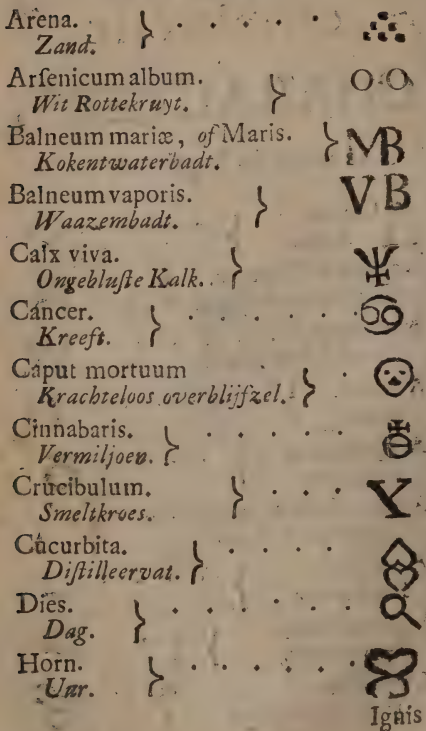 Arena.
Zand.
Arſenicum album.
Wit Rottekruyt.
Balneum mariæ, of Maris. MB
Kokentwaterbadt.
Balneum vaporis. VB
Waazembadt.
Calx viva.
Ongebluſte Kalk.
Cancer.
Kreeft.
Caput mortuum
Krachteloos overblijfzel.
Cinnabaris.
Vermiljoen.
Crucibulum.
Smeltkroes.
Cucurbita.
Diſtilleervat.
Dies.
Dag.
Horn.
Uur.
Ignis